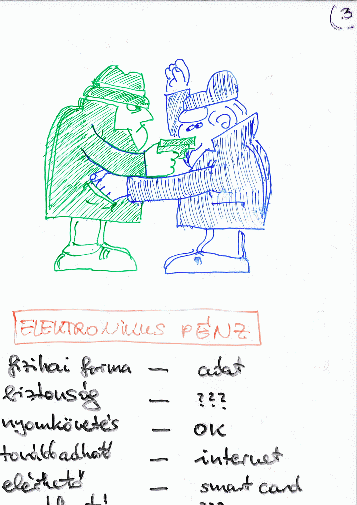 (3
ELEKTRONIKUS PÉNZ
fizikai forma — adat
biztonság — ???
nyomkövetés — OK
továbbadható — internet
elérhető — smart card
???